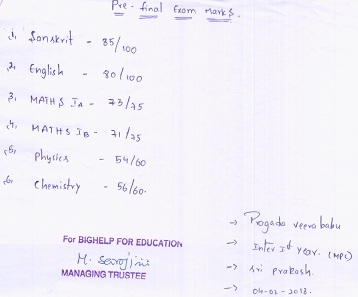 Pre - final Exam Marks.
1. Sanskrit - 85/100
2. English - 80/100
3. MATHS IA - 73/75
4. MATHS IB - 71/75
5. Physics - 54/60
6. Chemistry - 56/60.
→ Pragada veera babu
→ Inter Ist year. (MPC)
→ Sri prakash.
→ 04-02-2018.
For BIGHELP FOR EDUCATION
M. Sarojini
MANAGING TRUSTEE